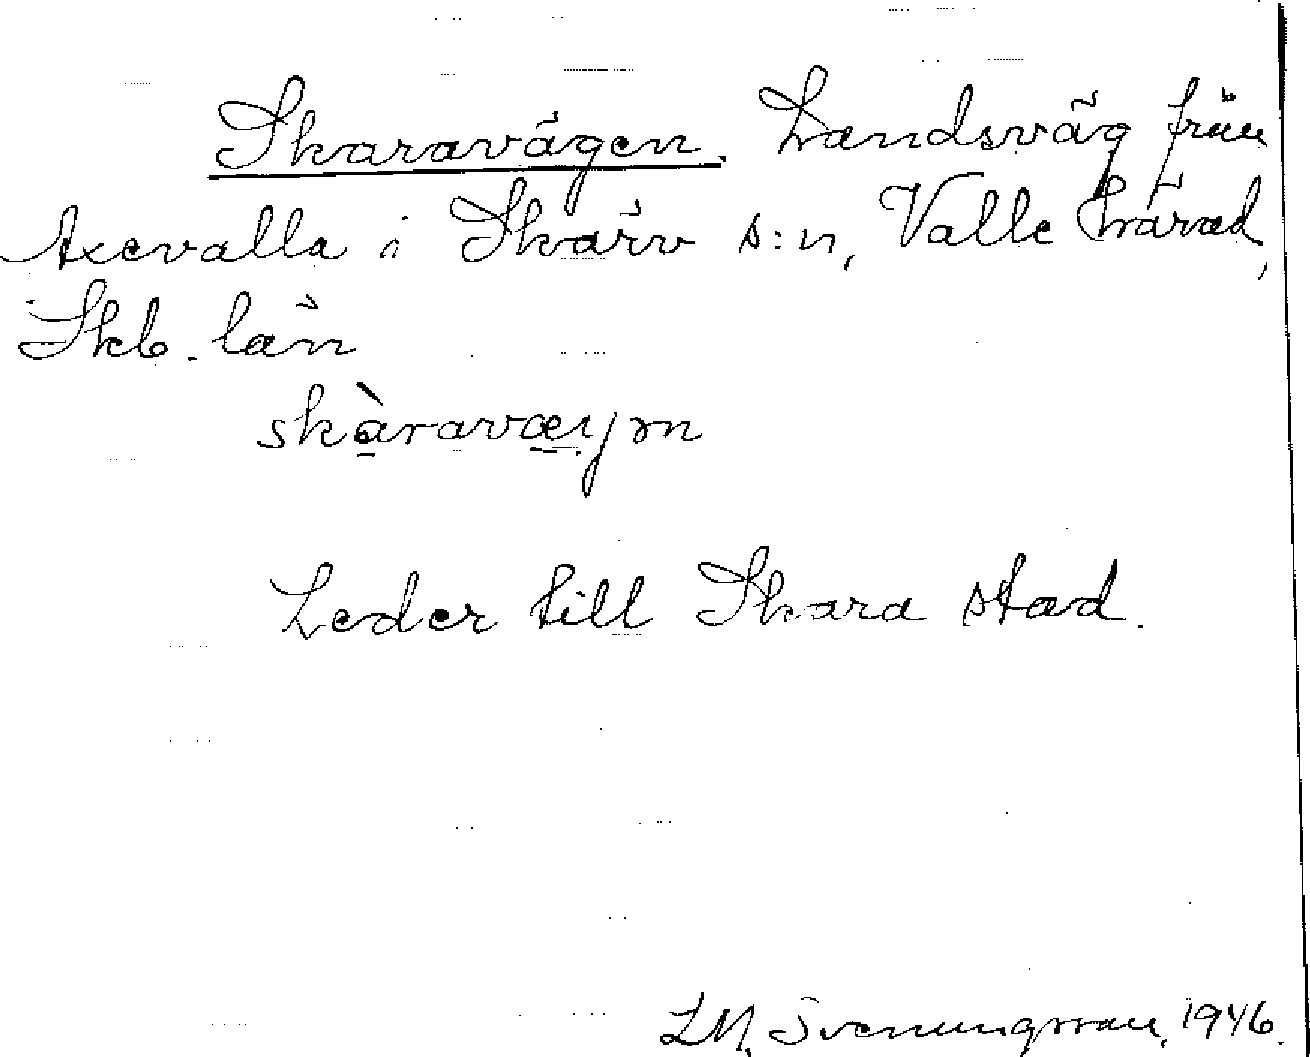 Skaravägen. Landsväg från
Axevalla i Skärv s:n, Valle härad,
Skb. län
skàravæɳm
Leder till Skara stad.
L.M. Svenungsson, 1946.